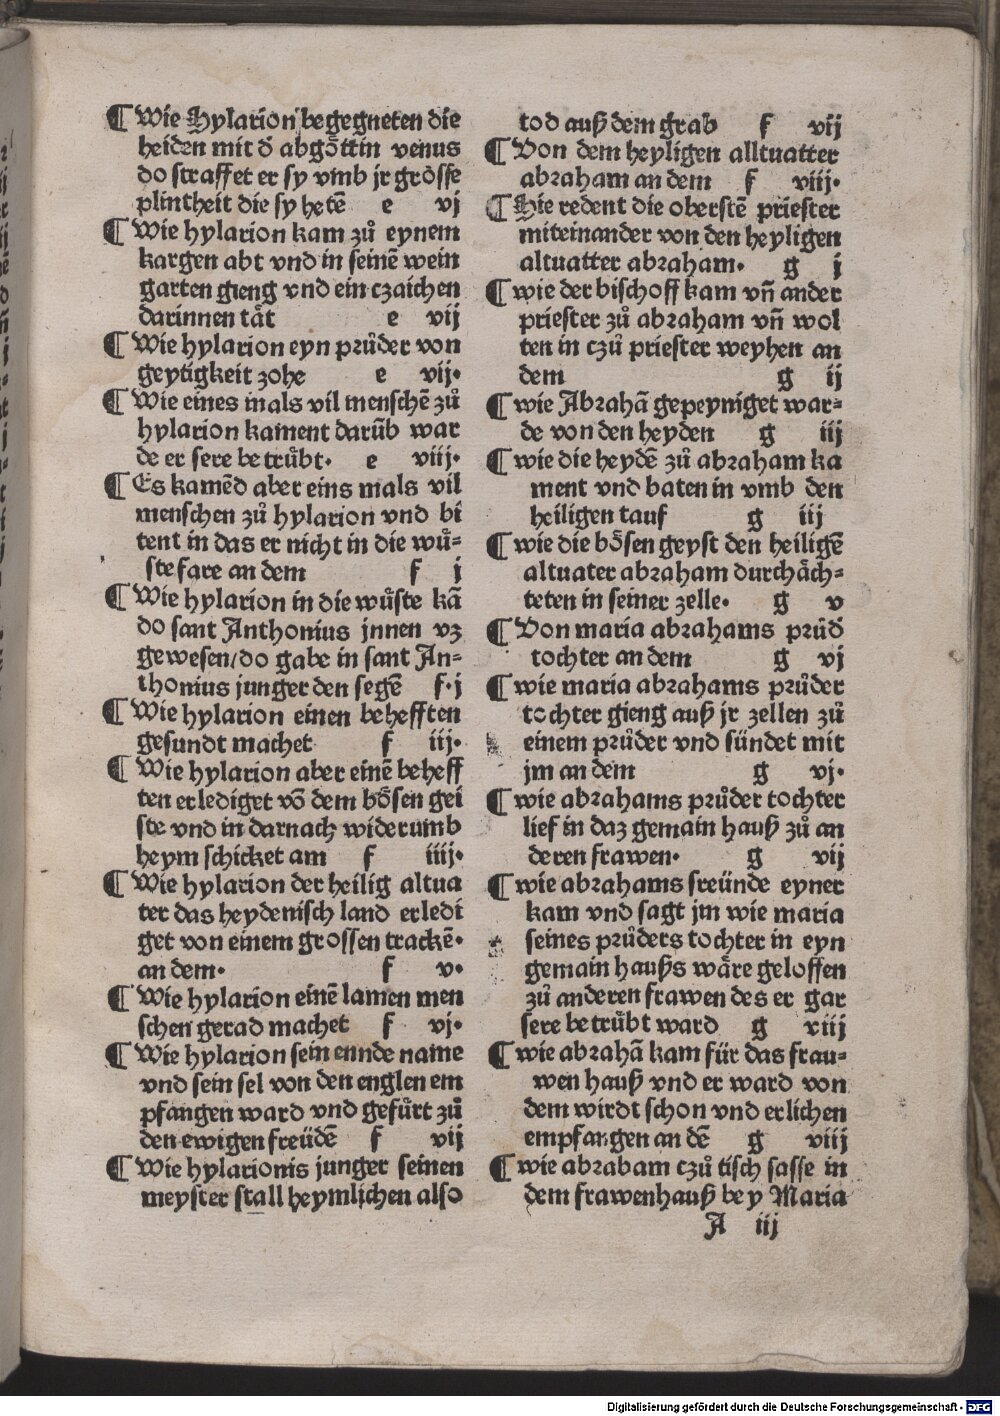 ¶ Wie Hylarion begegneten die
heiden mit d̕ abgöttin venus
do straffet er sy vmb jr grösse
plintheit die sy hetē e vj
¶ Wie hylarion kam zů eynem
kargen abt vnd in seinē wein
garten gieng vnd ein czaichen
darinnen tät e vij
¶ Wie hylarion eyn průder von
geytigkeit zohe e vij.
¶ Wie eines mals vil menschē zů
hylarion kament darūb war
de er sere betrübt. e viij.
¶ Es kamēd aber eins mals vil
menschen zů hylarion vnd bi
tent in das er nicht in die wů-
ste fare an dem f j
¶ Wie hylarion in die wůste kā
do sant Anthonius jnnen vꝫ
gewesen/do gabe in sant An-
thonius junger den segē f.j
¶ Wie hylarion einen behefften
gesundt machet f iij.
¶ Wie hylarion aber einē beheff
ten erlediget vō dem bösen gei
ste vnd in darnach widerumb
heym schicket am f iiij.
¶ Wie hylarion der heilig altua
ter das heydenisch land erledi
get von einem grossen trackē.
an dem. f v.
¶ Wie hylarion einē lamen men
schen gerad machet f vj.
¶ Wie hylarion sein ennde name
vnd sein sel von den englen em
pfangen ward vnd gefürt zů
den ewigen freüdē f vij
¶ Wie hylarionis junger seinen
meyster stall heymlichen also
tod auß dem grab f vij
¶ Von dem heyligen alltuatter
abraham an dem f viij.
¶ Hie redent die oberstē priester
miteinander von den heyligen
altuatter abraham. g j
¶ wie der bischoff kam vñ ander
priester zů abraham vñ wol
ten in czů priester weyhen an
dem g ij
¶ wie Abrahā gepeyniget war-
de von den heyden g iij
¶ wie die heydē zů abraham ka
ment vnd baten in vmb den
heiligen tauf g iij
¶ wie die bösen geyst den heiligē
altuater abraham durchäch-
teten in seiner zelle. g v
¶ Von maria abrahams průd̕
tochter an dem g vj
¶ wie maria abrahams průder
tochter gieng auß jr zellen zů
einem průder vnd sündet mit
jm an dem g vj.
¶ wie abrahams průder tochter
lief in daz gemain hauß zů an
deren frawen. g vij
¶ wie abrahams freünde eyner
kam vnd sagt jm wie maria
seines průders tochter in eyn
gemain haußs wäre geloffen
zů anderen frawen des er gar
sere betrübt ward g xiij
¶ wie abrahā kam für das frau-
wen hauß vnd er ward von
dem wirdt schon vnd erlichen
empfangen an dē g viij
¶ wie abrabam czů tisch sasse in
dem frawenhauß bey Maria
A iij
Digitalisierung gefördert durch die Deutsche Forschungsgemeinschaft - DFG